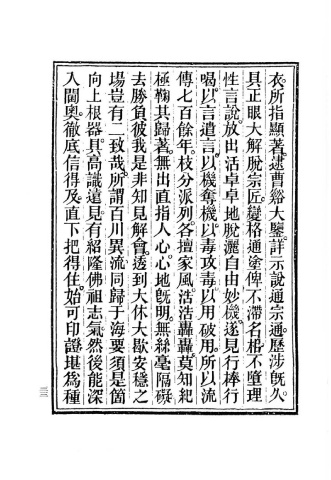 衣。所指顯著。逮曹谿大鑒。詳示說通宗通。歷涉旣久。
具正眼大解脫宗匠。變格通塗。俾不滯名相。不墮理
性言說。放出活卓卓地。脫灑自由妙機。遂見行棒行
喝。以言遣言。以機奪機。以毒攻毒。以用破用。所以流
傳七百餘年。枝分派列。各擅家風。浩浩轟轟。莫知紀
極。鞠其歸著。無出直指人心。心地旣明。無絲毫隔礙。
去勝負彼我是非知見解會。透到大休大歇安穩之
場。豈有二致哉。所謂百川異流。同歸于海。要須是箇
向上根器。具高識遠見。有紹隆佛祖志氣。然後能深
入閫奧。徹底信得及。直下把得住。始可印證。堪爲種
三三